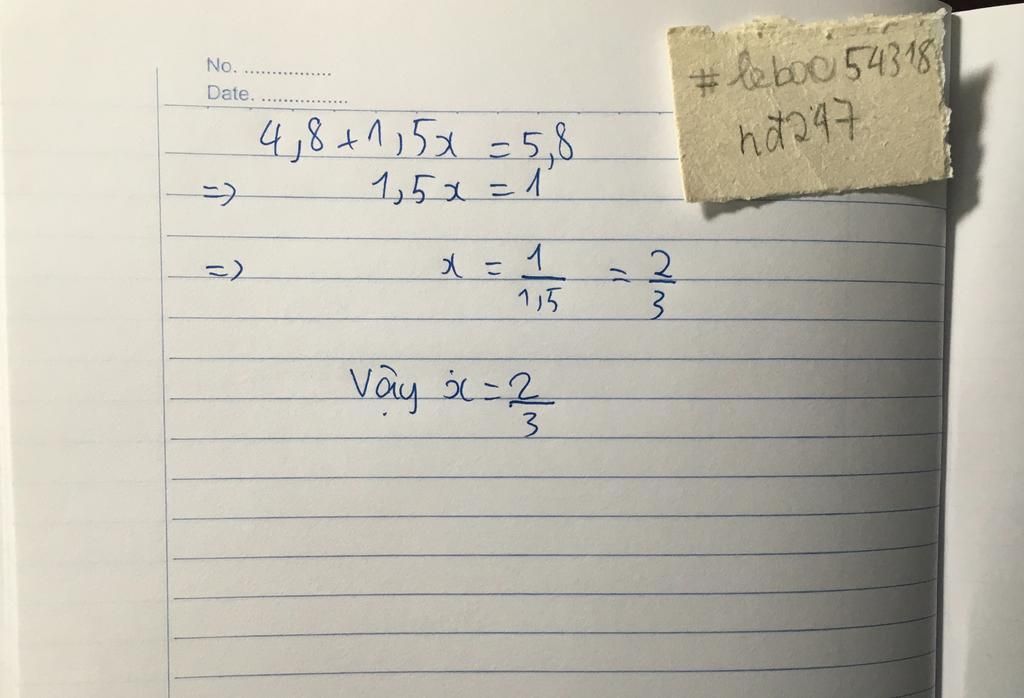 No. ................
Date. ................
#leboc54318
nđ247
4,8 + 1,5x = 5,8
=> 1,5x = 1
=> x = 1/1,5 = 2/3
Vậy x = 2/3